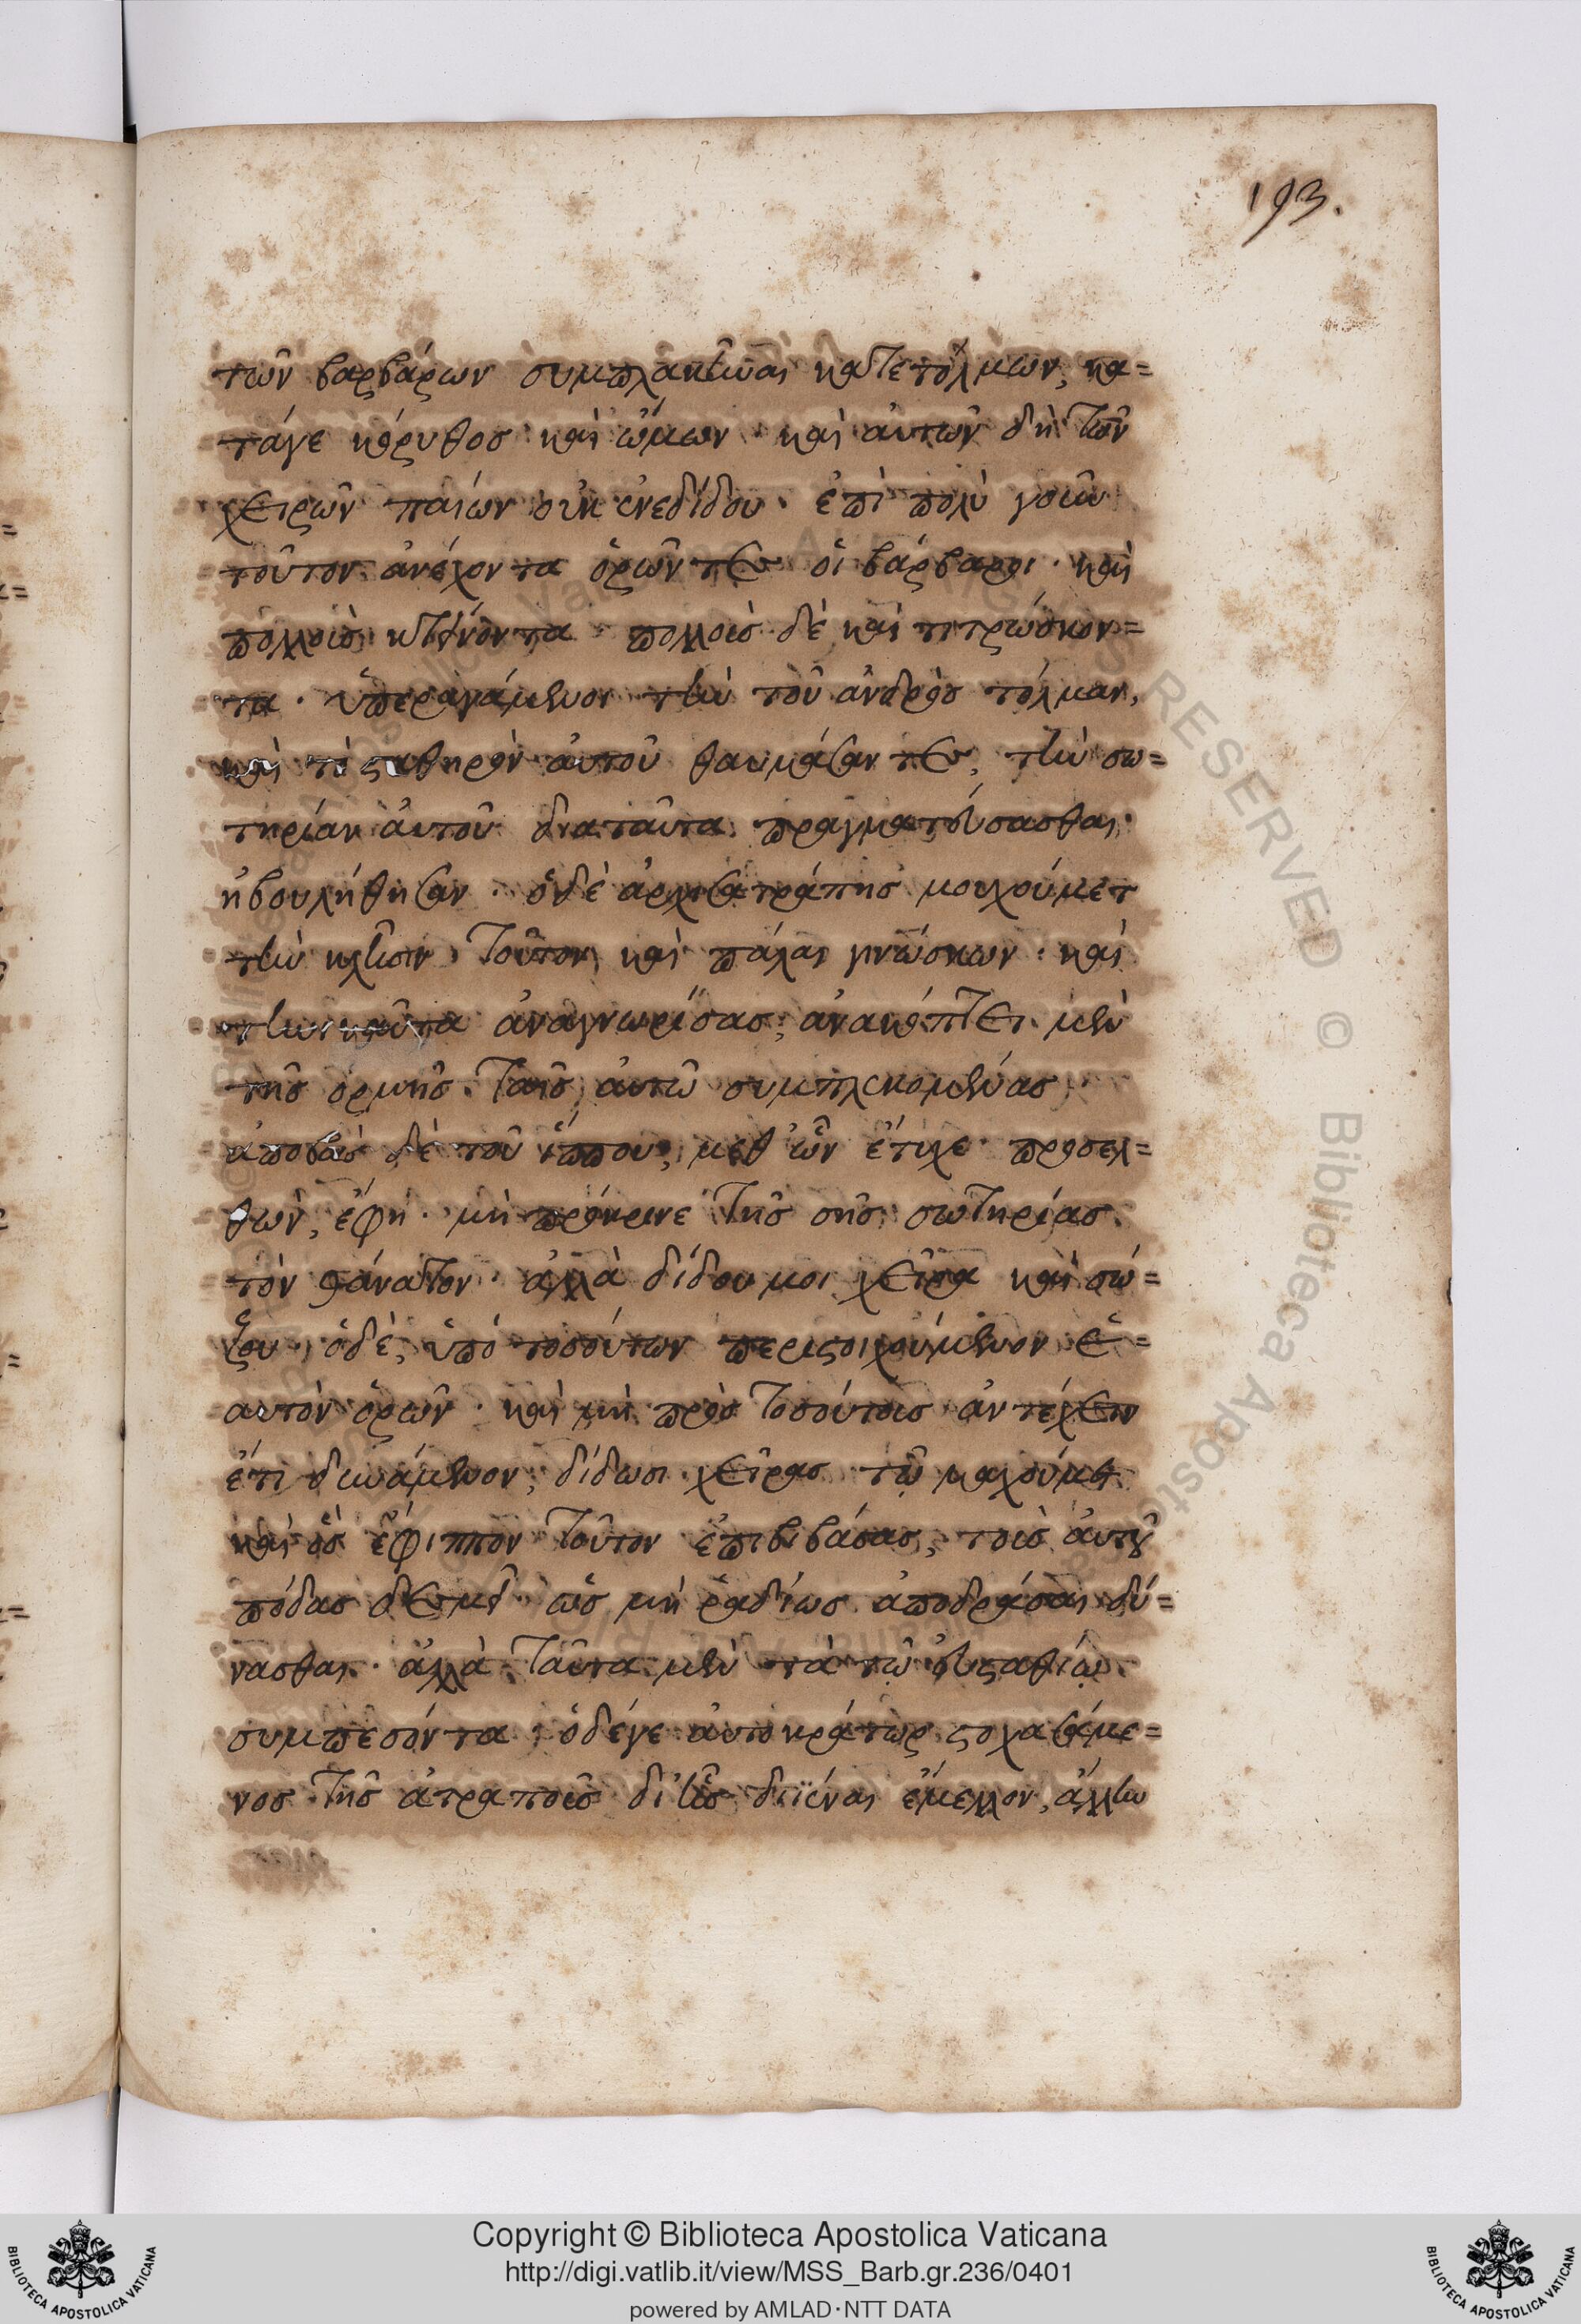 193.
τῶν βαρβάρων συμπλακῆναι κατετόλμων, κα=
τάγε κόρυθος καὶ ὤμων καὶ αὐτῶν δὴ τῶν
χειρῶν παίων οὐκ ἐνεδίδου. ἐπὶ πολὺ γοῦν
τοῦτον ἀνέχοντα ὁρῶντες οἱ βάρβαροι. καὶ
πολλοὺς κτείνοντα πολλοὺς δὲ καὶ τιτρώσκον=
τα. ὑπεραγάμενοι τὴν τοῦ ἀνδρὸς τόλμαν,
καὶ τὸ σταθηρὸν αὐτοῦ θαυμάσαντες, τὴν σω=
τηρίαν αὐτοῦ διαταῦτα πραγματεύσασθαι
ἠβουλήθησαν. ὁδὲ ἀρχισατράπης μουχούμετ
τὴν κλῆσιν, τοῦτον καὶ πάλαι γινώσκων. καὶ
τηνικαῦτα ἀναγνωρίσας, ἀνακόπτει μὲν
τῆς ὁρμῆς τοὺς αὐτῶ συμπλεκομένους
ἀποβὰς δὲ τοῦ ἵππου, μεθ' ὧν ἔτυχε προσελ=
θὼν, ἔφη. μὴ πρόκρινε τῆς σῆς σωτηρίας
τὸν θάνατον. ἀλλὰ δίδου μοι χεῖρα καὶ σώ=
ζου. ὁδὲ, ὑπὸ τοσούτων περιστοιχούμενον ἑ=
αυτὸν ὁρῶν. καὶ μὴ πρὸς τοσούτοις ἀντέχειν
ἔτι δυνάμενον, δίδωσι χεῖρας τῷ μαχούμετ
καὶ ὃς ἔφιππον τοῦτον ἐπιβιβάσας, τοὺς αὐτοῦ
πόδας δεσμεῖ ὡς μὴ ῥαδίως ἀποδράσαι δύ=
νασθαι. ἀλλὰ ταῦτα μὲν τὰ τῷ εὐσταθίῳ
συμπεσόντα, ὁδέγε αὐτοκράτωρ στοχασάμε=
νος τῆς ἀτραποῦ δι' ἧς διϊέναι ἔμελλον, ἄλλην